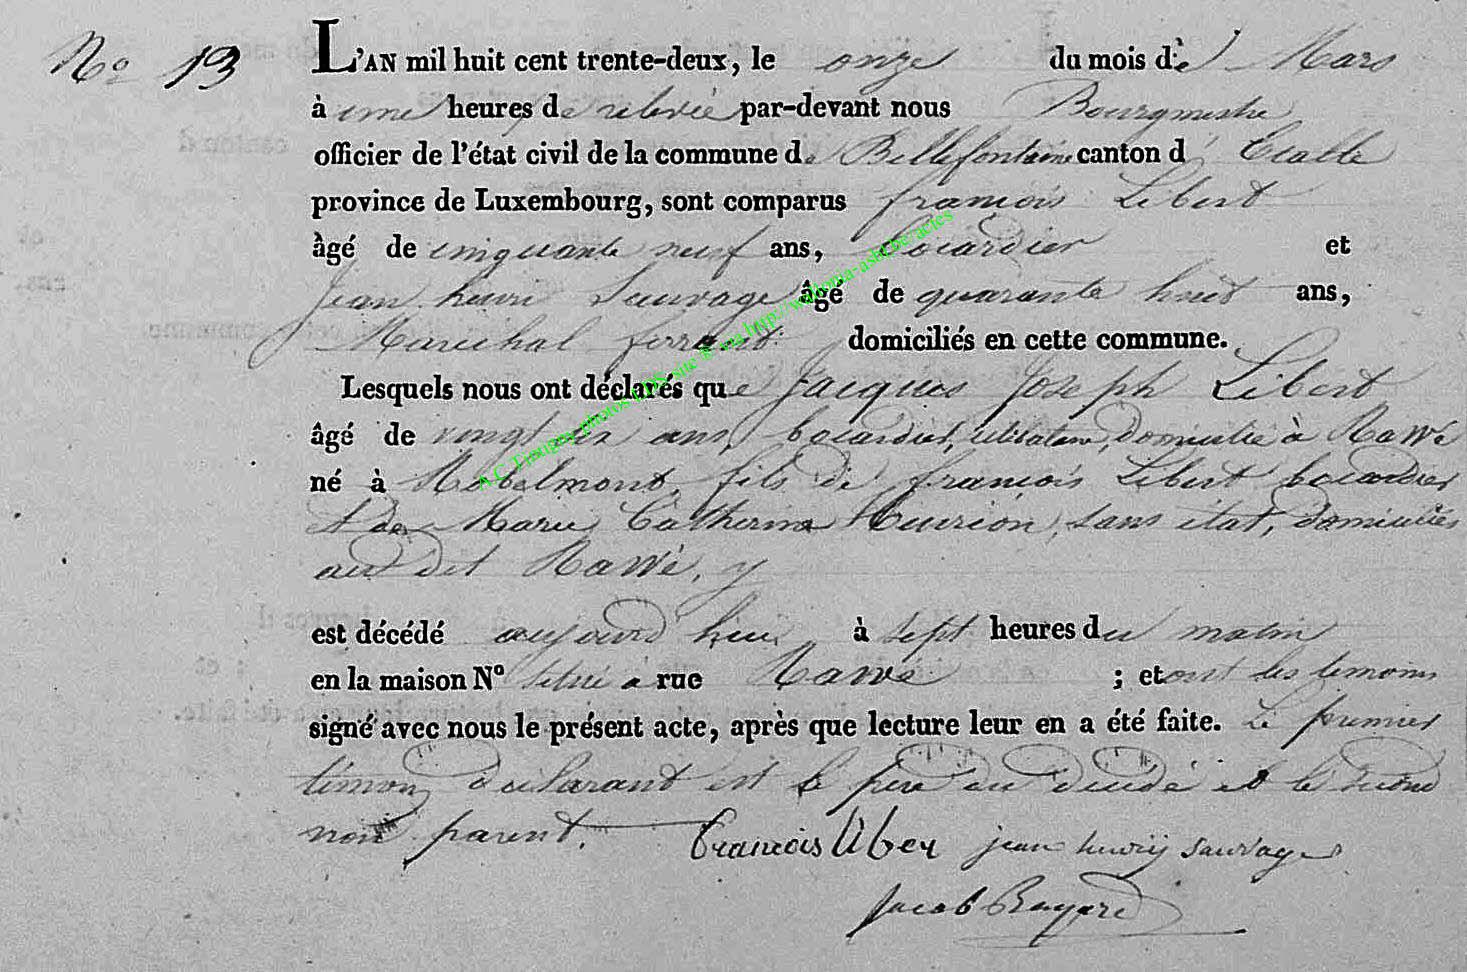 No 13
L'AN mil huit cent trente-deux, le onze du mois de Mars
à une heures de relevée par-devant nous Bourgmestre
officier de l'état civil de la commune de Bellefontaine canton d' Etalle
province de Luxembourg, sont comparus françois Libert
âgé de cinquante neuf ans, bocardier et
Jean henri Sauvage âgé de quarante huit ans,
Maréchal ferrant domiciliés en cette commune.
Lesquels nous ont déclarés que Jacques Joseph Libert
âgé de vingt ans, bocardier, célibataire, domicilié à Rawé
né à fils de françois Libert bocardier
et de Marie Catherine sans état, domiciliés
au dit Rawé, y
est décédé aujourd'hui à sept heures du matin
en la maison No située à rue Rawé ; et ont les témoins
signé avec nous le présent acte, après que lecture leur en a été faite. Le premier
témoin déclarant est le père du décédé et le second
non parent.
françois Liber jean henry sauvage
Jacob Bayard
A.C Tintigny photos LDS site ® via http://wallonia-asbl.be/actes